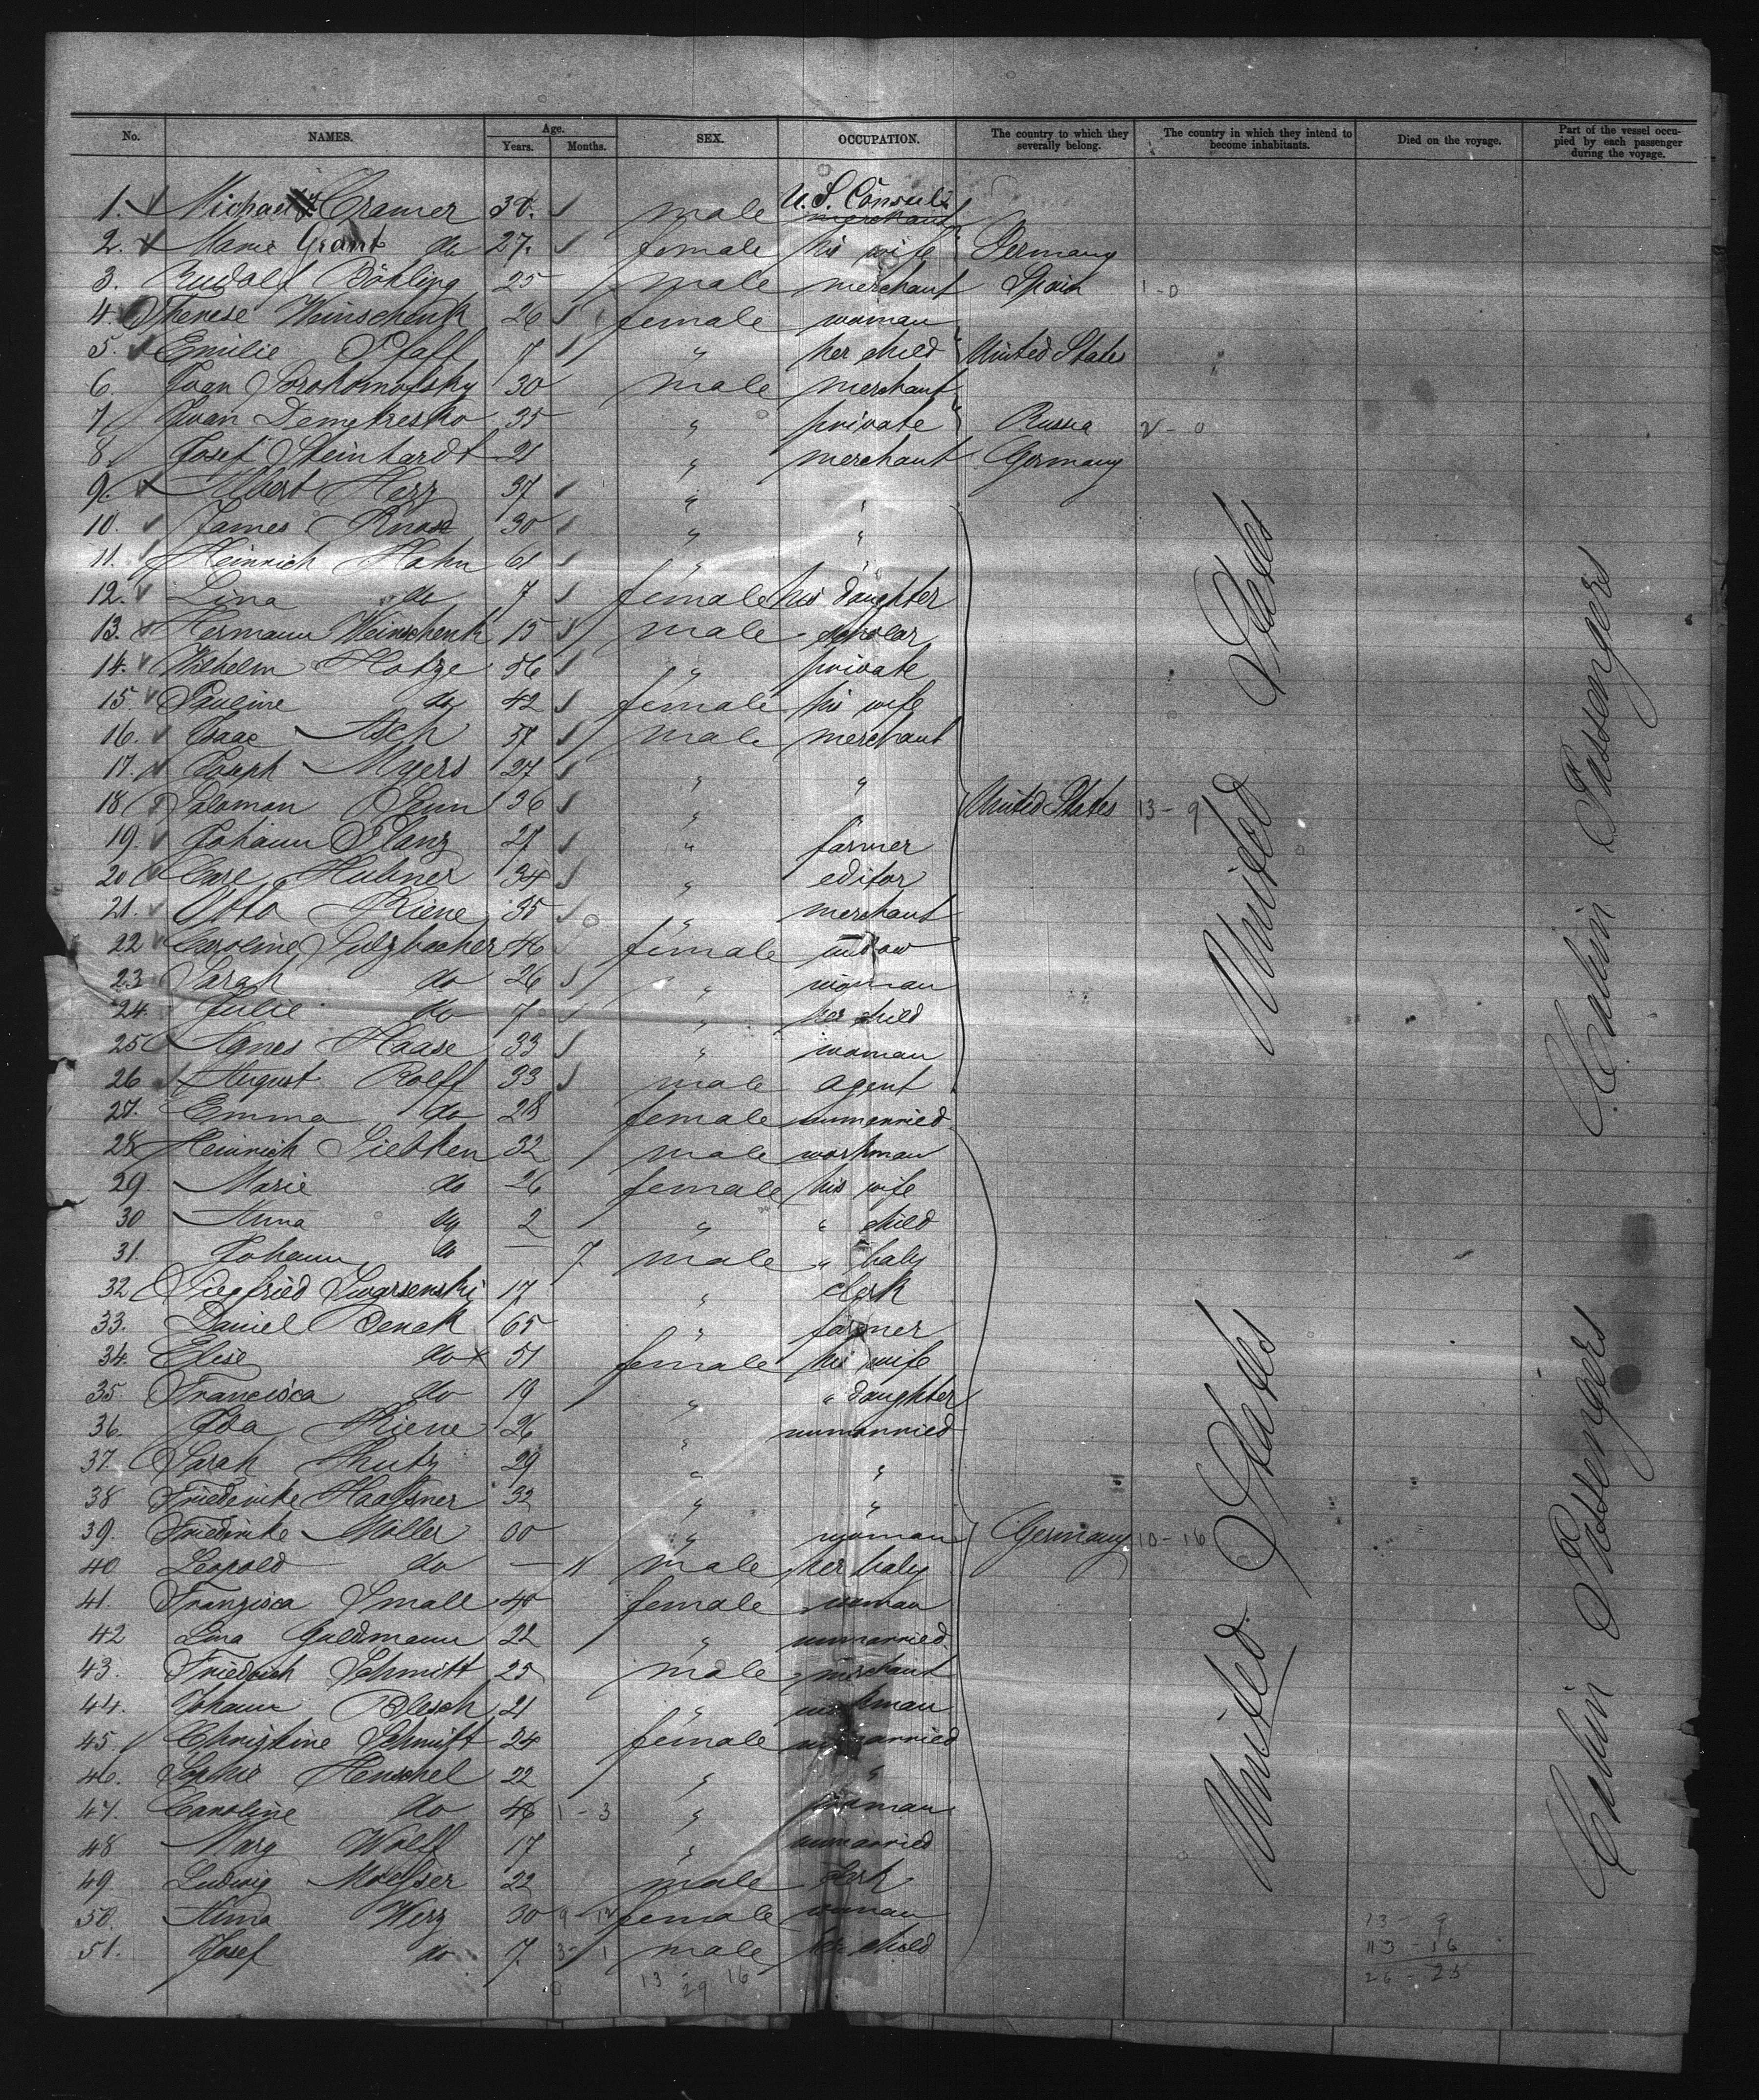 No. NAMES. Age. Years. Months. SEX. OCCUPATION. The country to which they severally belong. The country in which they intend to become inhabitants. Died on the voyage. Part of the vessel occupied by each passenger during the voyage.
1. Michael Cramer 30. male U.S. Consul merchant
2. Marie Grant do 27. female his wife Germany
3. Rudolf Böhling 25 male merchant Spain 1-0
4. Therese Weinschenk 26 female woman
5. Emilie Pfaff 7 " her child United States
6. Ivan 30 male merchant
7 Ivan Demetresko 35 " private Russia 2-0
8. Josef Steinhardt 21 " merchant Germany
9. Albert Herz 37 " "
10. James 30 " "
11. Heinrich Hahn 61 " "
12. Lina do 7 female his daughter
13. Hermann Weinschenk 15 male scholar
14. Wilhelm Hotze 56 " private
15 Pauline do 42 female his wife
16. Isaac Asch 57 male merchant
17. Joseph Myers 27 " "
18 Salomon 36 " United States 13-9
19. Johann Planz 27 " farmer
20 Carl Hubner 34 " editor
21. Otto Kiene 35 " merchant
22 Caroline Sulzbacher 46 female widow
23 Sarah do 26 " woman
24 Julie do 7 " her child
25 Agnes Haase 33 " woman
26 August Rolff 33 male agent
27. Emma do 28 female unmarried
28 Heinrich Siebken 32 male workman
29 Marie do 26 female his wife
30 Anna do 2 " " child
31. Johann do — 7 male " baby
32 Siegfried Swarsenski 17 " clerk
33. Daniel Benak 65 " farmer
34. Elise do 51 female his wife
35. Francisca do 19 " " daughter
36. Ida Kiene 26 " unmarried
37. Sarah 29 " "
38 Friedericke 32 " "
39. Friedericke Möller 30 " woman Germany 10-16
40 Leopold do — 11 male her baby
41. Franzisca Small 40 female woman
42 Lina Guldmann 22 " unmarried
43. Friedrich Schmitt 25 male merchant
44. Johann Blesch 21 " workman
45. Christine Schmitt 24 female unmarried
46. Sophie Henschel 22 " "
47. Caroline do 48 1-3 " woman
48 Marg Wolff 17 " unmarried
49 Ludwig 22 male clerk
50. Anna Werz 30 female woman
51. Josef do 7. 3-1 male her child
13 - 16
29
United States
United States
13-9
113-16
26-25
Cabin Passengers
Cabin Passengers